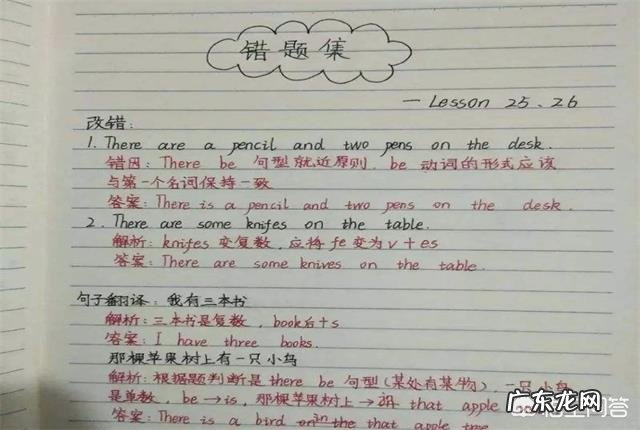 错题集
— Lesson 25、26
改错:
1. There are a pencil and two pens on the desk.
错因: There be 句型就近原则, be 动词的形式应该
与第一个名词保持一致
答案: There is a pencil and two pens on the desk.
2. There are some knifes on the table.
解析: knifes 变复数, 应将 fe 变为 v + es
答案: There are some knives on the table.
句子翻译: 我有三本书
解析: 三本书是复数, book后+s
答案: I have three books.
那棵苹果树上有一只小鸟
解析: 根据题判断是 there be 句型 (某处有某物), 一只小鸟
是单数, be → is, 那棵苹果树上 → that apple
答案: There is a bird in the that apple tree
广东龙网